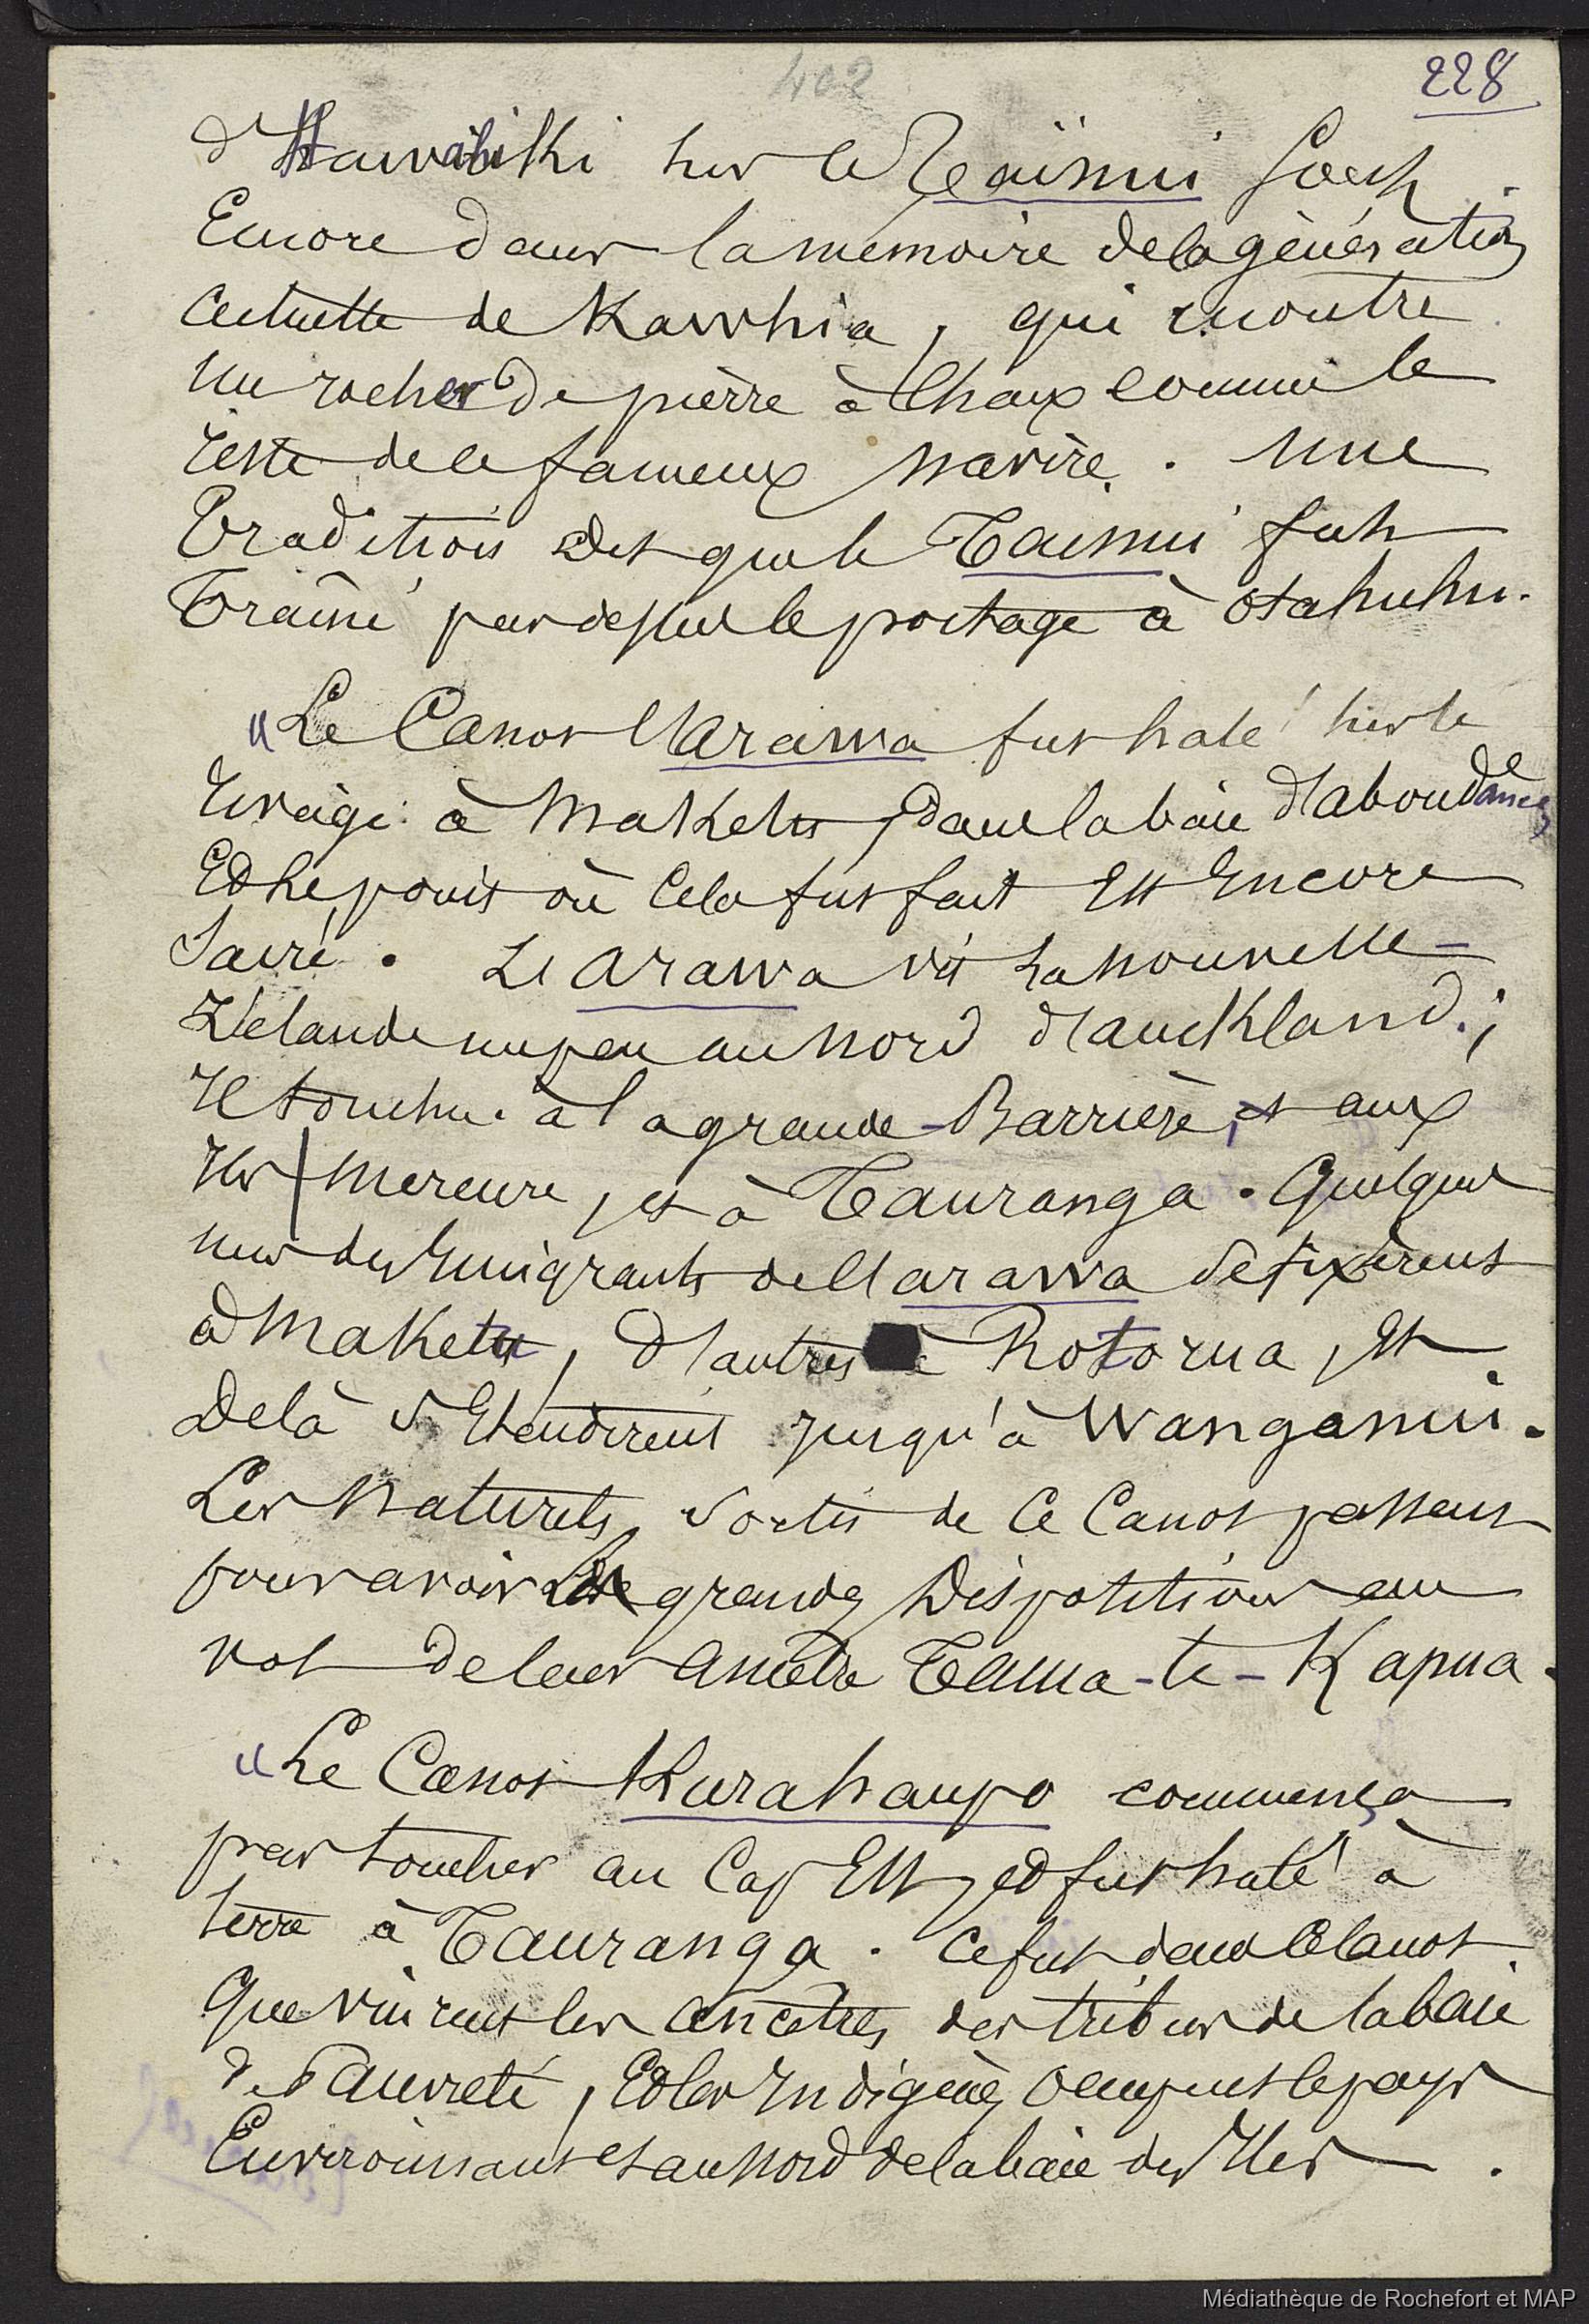 402
228
d'Hawaïki sur le Taïnui sont
Encore dans la mémoire de la génération
actuelle de Kawhia, qui montre
un rocher de pierre à chaux comme le
reste de ce fameux navire. Une
Tradition dit que le Tainui fut
Traîné par dessus le portage à Otahuhu.
"Le Canot l'Arawa fut halé sur le
rivage à Maketu, dans la baie d'abondance
Et le point où cela fut fait Est Encore
Sacré. Le Arawa vit la Nouvelle-
Zélande un peu au Nord d'Auckland;
Il toucha à la grande-Barrière, et aux
Iles Mercure, et à Tauranga. Quelques
uns des Emigrants de l'arawa se fixèrent
à Maketu, d'autres à Rotorua, Et
De là s'Etendirent jusqu'à Wanganui.
Les Naturels, Sortis de Ce Canot passent
pour avoir de grandes Dispositions au
vol de leur Ancêtre Tama-te-Kapua.
"Le Canot Kurahaupo commença
par toucher au Cap Est, et fut halé à
terre à Tauranga. Ce fut dans Ce Canot
Que vinrent les Ancêtres des tribus de la baie
de Pauvreté, Et les Indigènes Occupent le pays
Environnant et au Nord de la baie des Iles.
Médiathèque de Rochefort et MAP